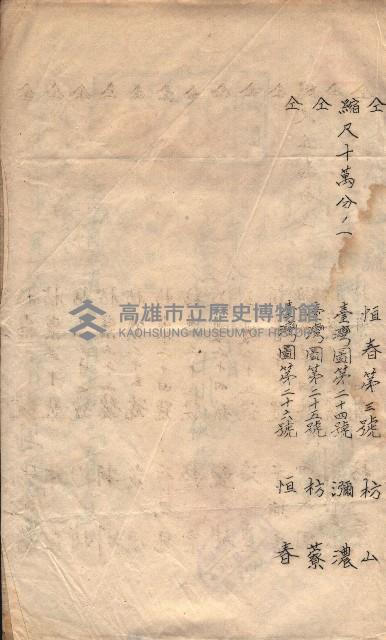 仝 恒春第三號 枋山
縮尺十萬分ノ一 臺灣圖第二十四號 瀰濃
仝 臺灣圖第二十五號 枋藔
仝 臺灣圖第二十六號 恒春
高雄市立歷史博物館
KAOHSIUNG MUSEUM OF HISTORY